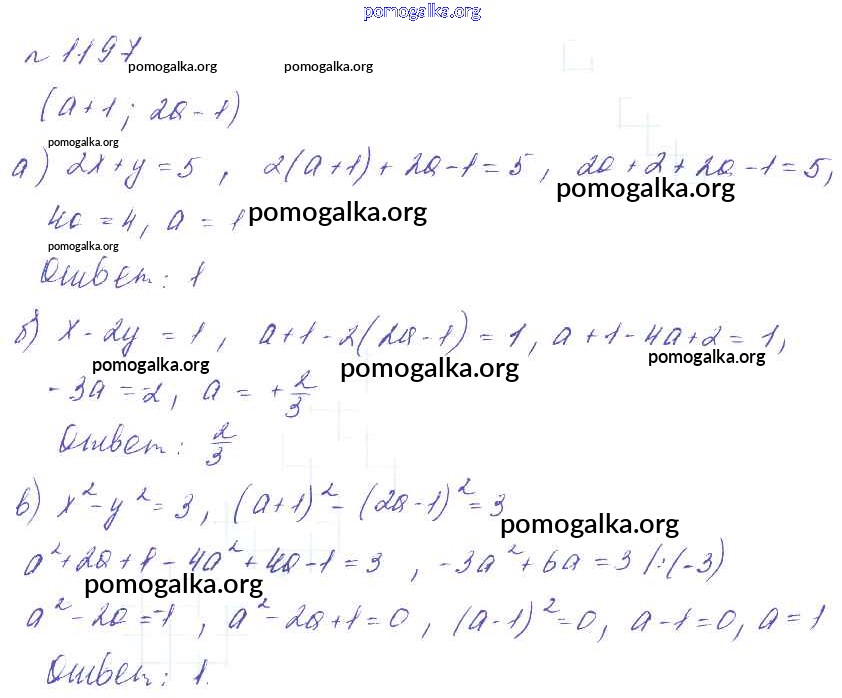 pomogalka.org
№ 1197
pomogalka.org pomogalka.org
(a+1; 2a-1)
pomogalka.org
а) 2x+y=5, 2(a+1)+2a-1=5, 2a+2+2a-1=5,
pomogalka.org
4a=4, a=1
pomogalka.org
pomogalka.org
Ответ: 1
б) x-2y=1, a+1-2(2a-1)=1, a+1-4a+2=1,
pomogalka.org pomogalka.org pomogalka.org
-3a=-2, a=+2/3
Ответ: 2/3
в) x²-y²=3, (a+1)²-(2a-1)²=3
pomogalka.org
a²+2a+1-4a²+4a-1=3, -3a²+6a=3 /:(-3)
pomogalka.org
a²-2a=-1, a²-2a+1=0, (a-1)²=0, a-1=0, a=1
Ответ: 1.